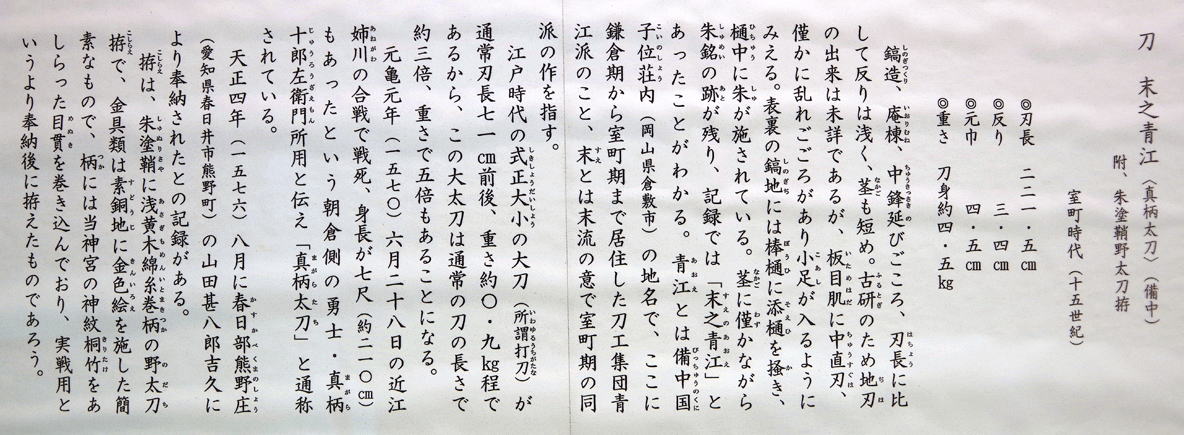 刀　末之青江（真柄太刀）（備中）
附、朱塗鞘野太刀拵
室町時代（十五世紀）
◎刃長　二二一・五㎝
◎反り　三・四㎝
◎元巾　四・五㎝
◎重さ　刀身約四・五kg
鎬造、庵棟、中鋒延びごころ、刃長に比
して反りは浅く、茎も短め。古研のため地刃
の出来は未詳であるが、板目肌に中直刃、
僅かに乱れごころがあり小足が入るように
みえる。表裏の鎬地には棒樋に添樋を掻き、
樋中に朱が施されている。茎に僅かながら
朱銘の跡が残り、記録では「末之青江」と
あったことがわかる。青江とは備中国
子位荘内（岡山県倉敷市）の地名で、ここに
鎌倉期から室町期まで居住した刀工集団青
江派のこと、末とは末流の意で室町期の同
派の作を指す。
江戸時代の式正大小の大刀（所謂打刀）が
通常刃長七一㎝前後、重さ約〇・九kg程で
あるから、この大太刀は通常の刀の長さで
約三倍、重さで五倍もあることになる。
元亀元年（一五七〇）六月二十八日の近江
姉川の合戦で戦死、身長が七尺（約二一〇㎝）
もあったという朝倉側の勇士・真柄
十郎左衛門所用と伝え「真柄太刀」と通称
されている。
天正四年（一五七六）八月に春日部熊野庄
（愛知県春日井市熊野町）の山田甚八郎吉久に
より奉納されたとの記録がある。
拵は、朱塗鞘に浅黄木綿糸巻柄の野太刀
拵で、金具類は素銅地に金色絵を施した簡
素なもので、柄には当神宮の神紋桐竹をあ
しらった目貫を巻き込んでおり、実戦用と
いうより奉納後に拵えたものであろう。